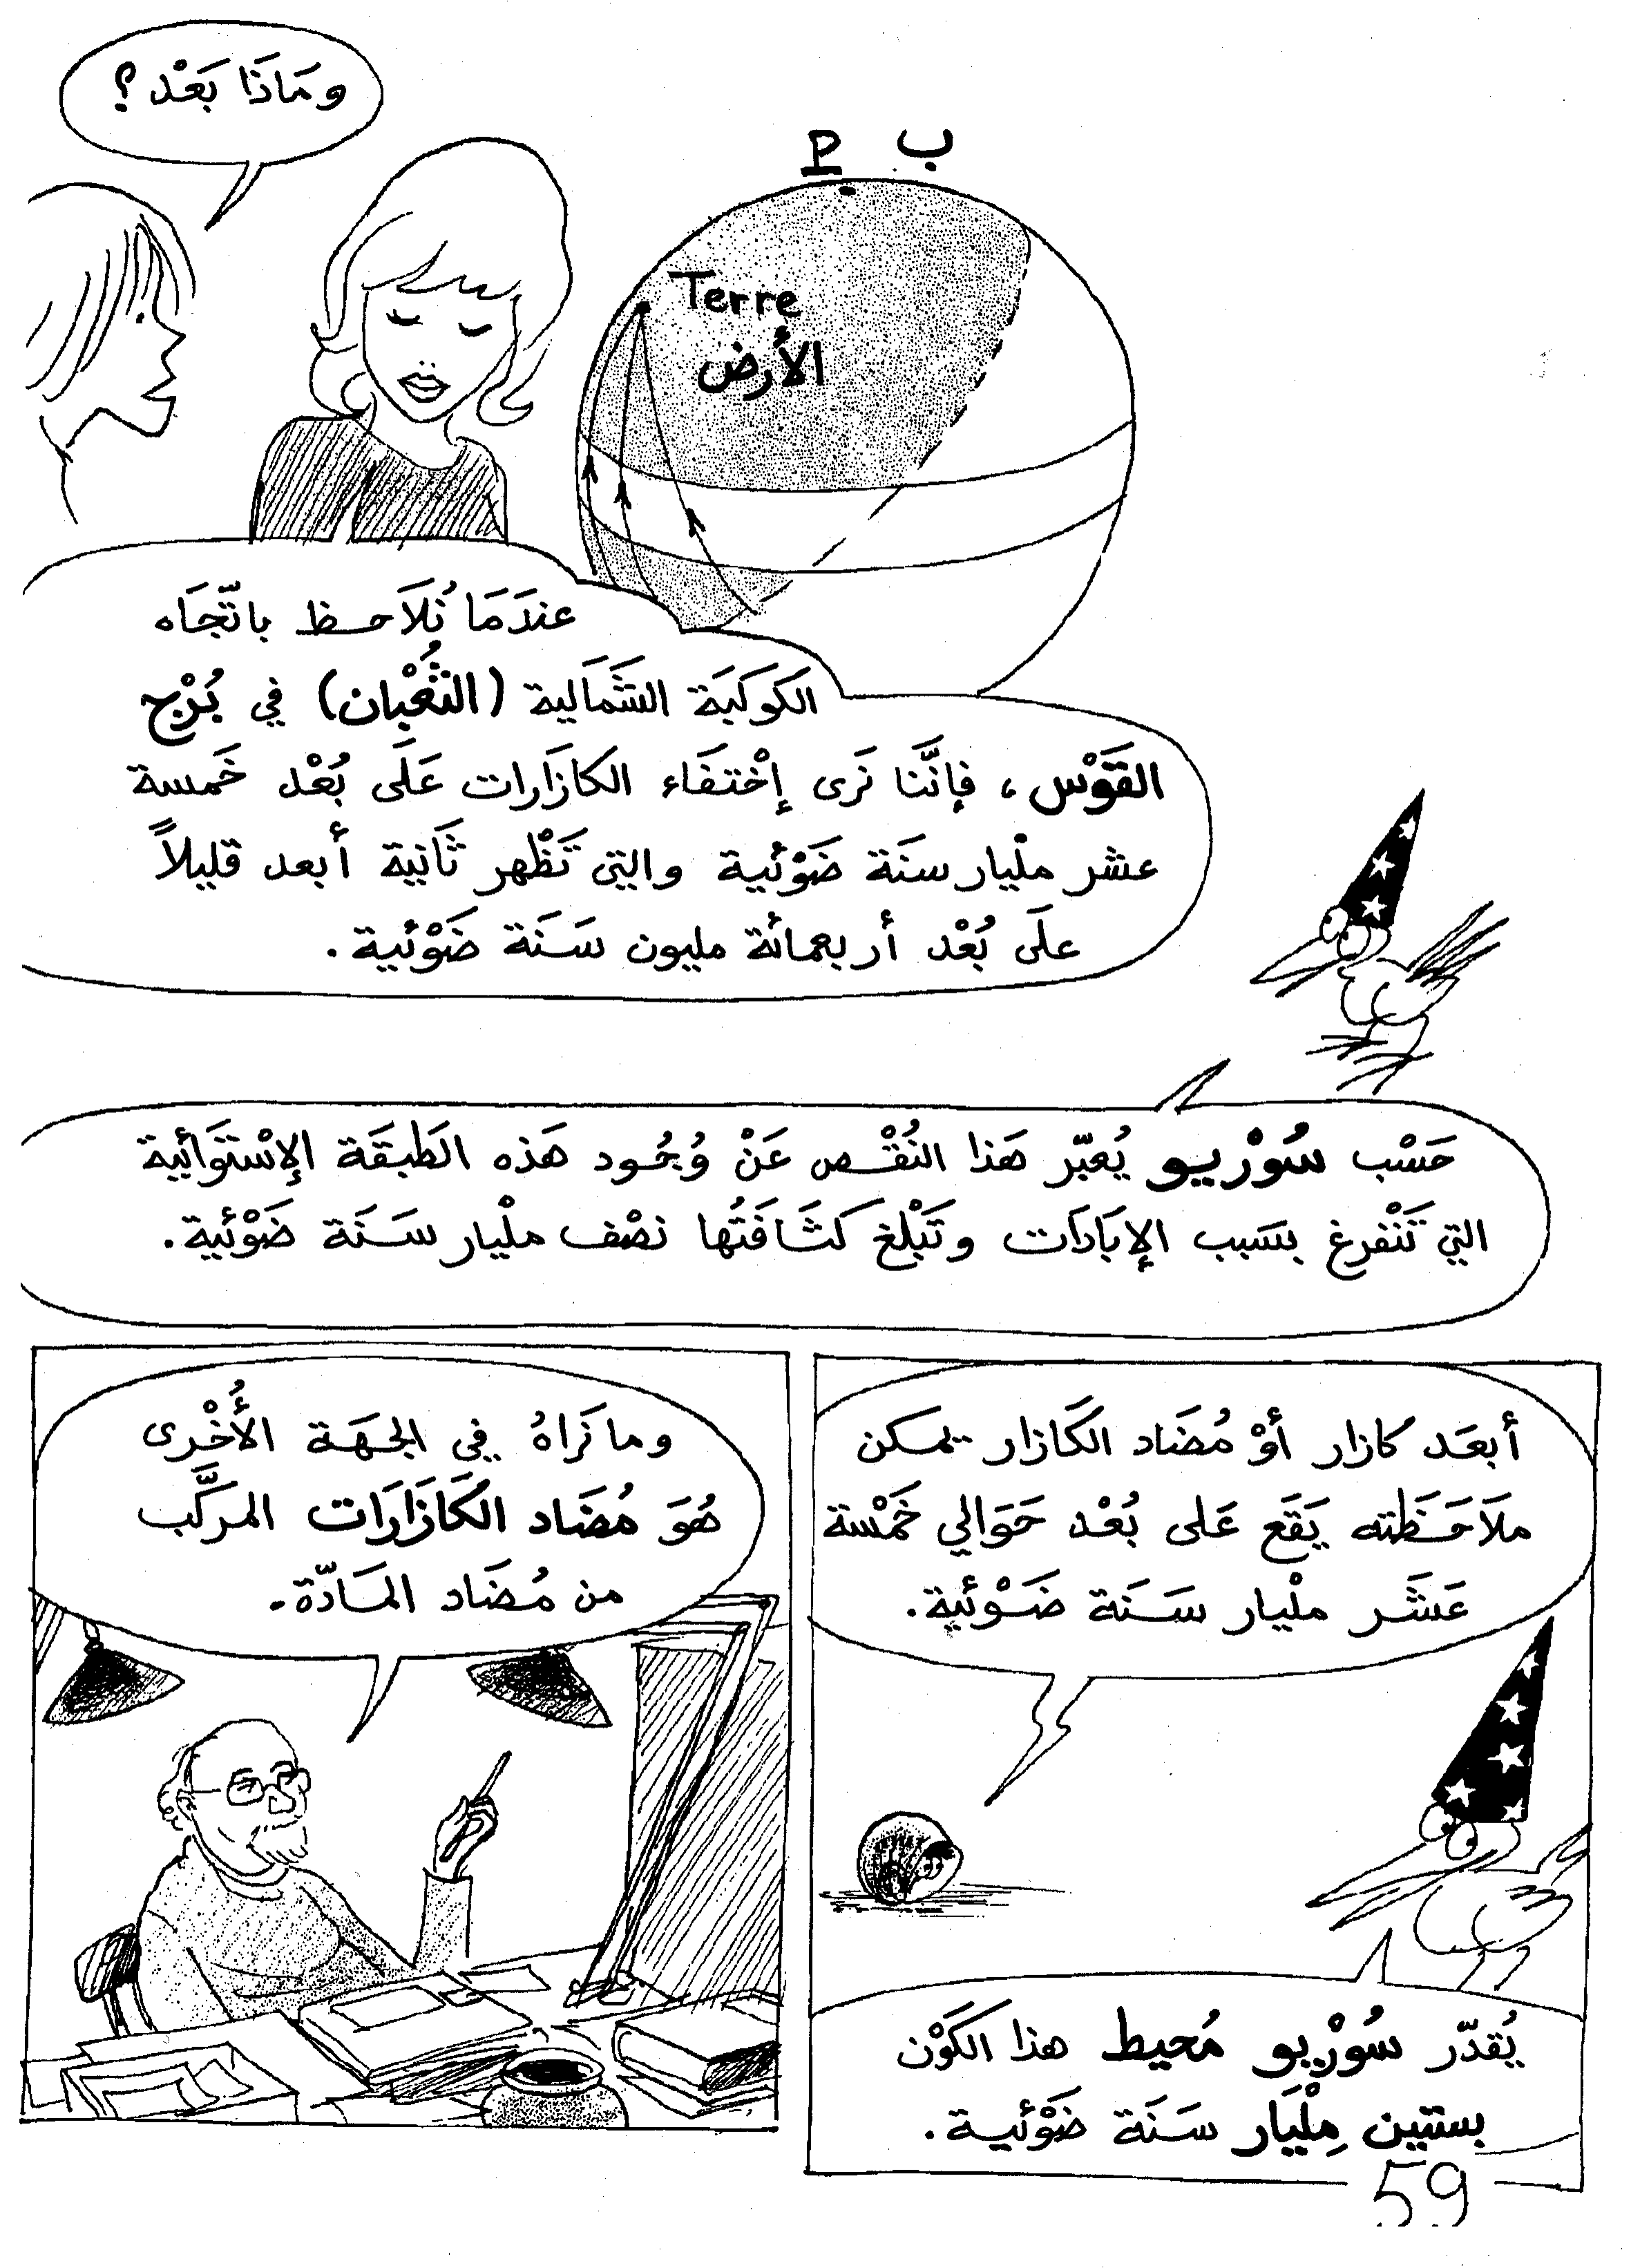 وَمَاذَا بَعْد ؟
P ب
Terre
الأَرض
عندَمَا نُلاَحـظ باتّجَاه
الكَوكَبَة الشَمَالية (الثُعْبان) في بُرْج
القَوْس ، فإنَّنا نَرى إخْتفَاء الكازَارات عَلَى بُعْد خَمسة
عشر ملْيار سنَة ضَوْئية والتي تَظْهر ثَانية أبعد قليلاً
علَى بُعْد أربعمائة مليون سَنَة ضَوْئية .
حَسْب سُوْريو يُعبّر هَذا النُقْـص عَنْ وُجُود هَذه الطَبقَة الإسْتوَائية
التي تَنْفرغ بسَبب الإبَادَات وتَبْلغ كَثَافَتُها نصْف ملْيار سَنَة ضَوْئية .
أبعَد كازار أوْ مُضَاد الكَازار يمكن
ملاَحَظَته يَقَع عَلى بُعْد حَوَالي خَمْسة
عَشَر ملْيار سَنَة ضَوْئية .
وما نَراهُ في الجهَة الأُخْرى
هُوَ مُضَاد الكَازَارَات المركَّب
من مُضَاد المَادّة .
يُقدّر سُوْريو مُحيط هذا الكَوْن
بستين مِلْيَار سَنَة ضَوْئية .
59